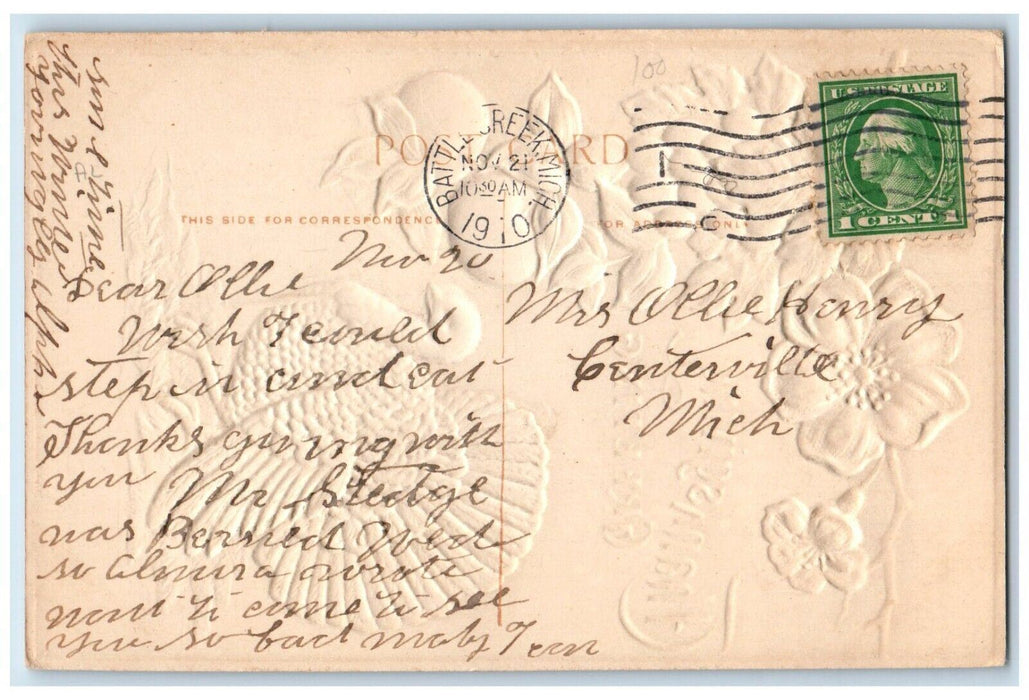 100
POST CARD
BATTLE CREEK, MICH.
NOV 21
10 30 AM
1910
U.S. POSTAGE
1 CENT 1
THIS SIDE FOR CORRESPONDENCE
FOR ADDRESS ONLY
Nov 20
Dear Ollie
Wish I could
step in and eat
Thanks giving with
you Mr Sledge
was Burned Wed
so Almira wrote
want to come to see
you so bad maby I can
some time
this winter
yours
Mrs Ollie Henry
Centerville
Mich